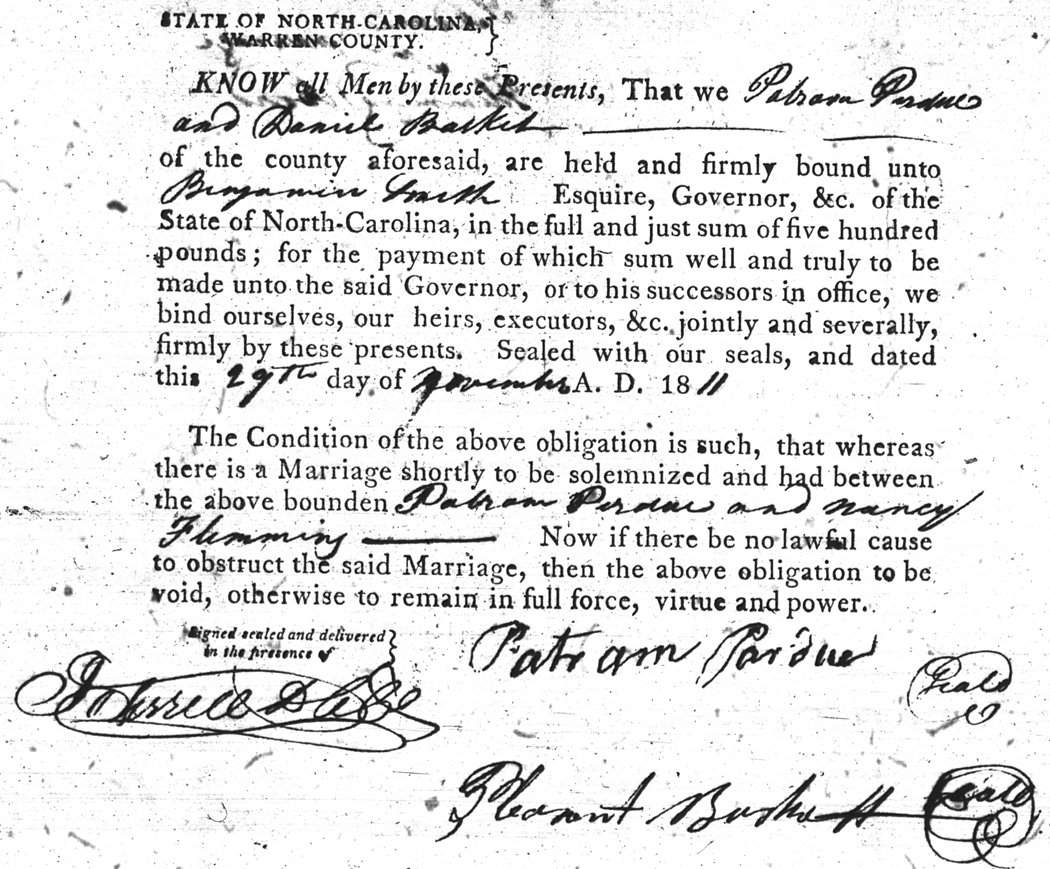 STATE OF NORTH-CAROLINA,
WARREN COUNTY.
KNOW all Men by these Presents, That we Patram Perdue
and Daniel Basket
of the county aforesaid, are held and firmly bound unto
Benjamin Smith Esquire, Governor, &c. of the
State of North-Carolina, in the full and just sum of five hundred
pounds; for the payment of which sum well and truly to be
made unto the said Governor, or to his successors in office, we
bind ourselves, our heirs, executors, &c. jointly and severally,
firmly by these presents. Sealed with our seals, and dated
this 29th day of November A. D. 1811
The Condition of the above obligation is such, that whereas
there is a Marriage shortly to be solemnized and had between
the above bounden Patram Perdue and Nancy
Flemming Now if there be no lawful cause
to obstruct the said Marriage, then the above obligation to be
void, otherwise to remain in full force, virtue and power.
Signed sealed and delivered
in the presence of
Patram Pardue
Seald
Pleasant Baskett Seald